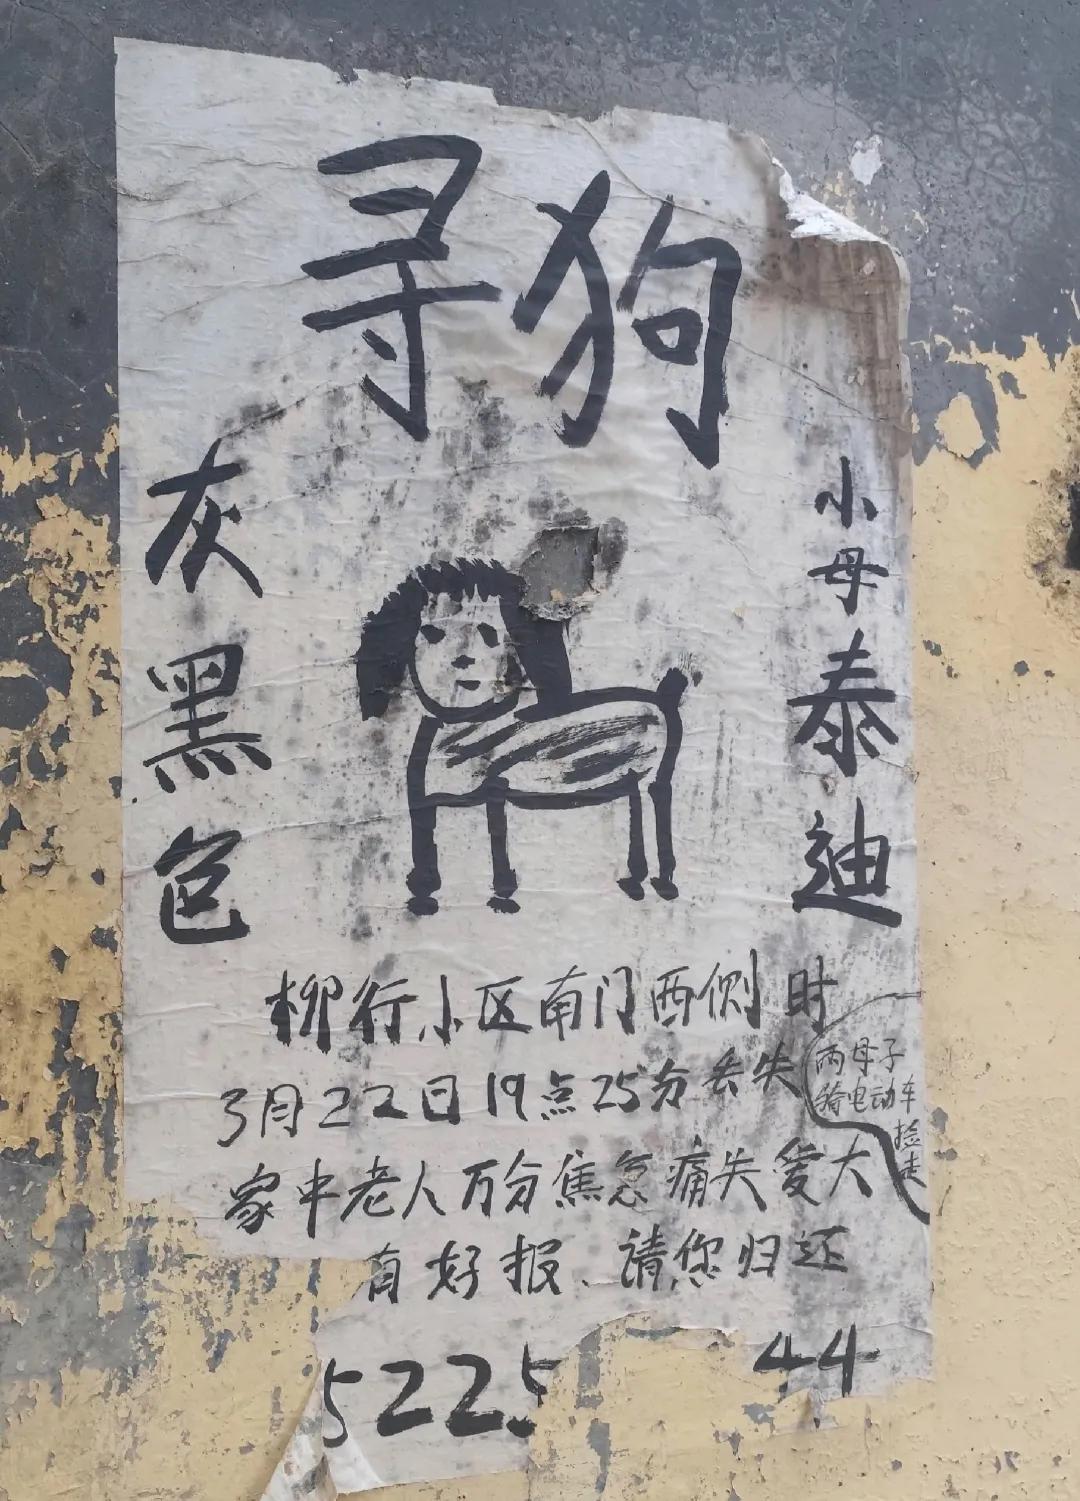 寻狗
灰黑色
小母泰迪
柳行小区南门西侧
3月22日19点25分丢失时
两母子
骑电动车
捡走
家中老人万分焦急痛失爱犬
有好报、请您归还
5225
44